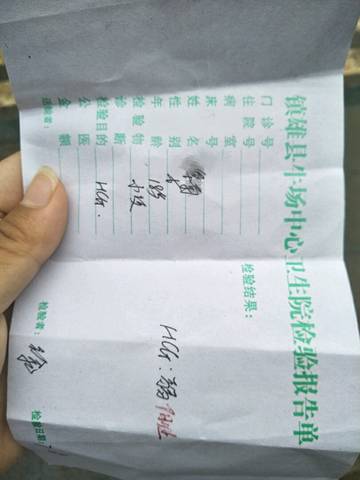 镇雄县牛场中心卫生院检验报告单
门诊号
住院号
病室
床号
姓名
性别 女
年龄 18岁
检验物 小便
诊断
检验目的 HCG.
公医
金额
送检者:
检验结果:
HCG: 弱阳性
检验者:
检验日期: